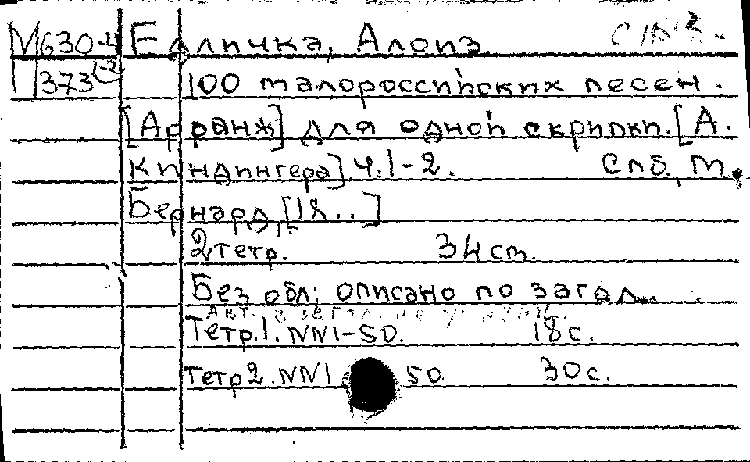 М630-4 Едличка, Алоиз
373 100 малороссийских песен.
[Арранж] для одной скрипки. [А.
Киндингера] Ч.1-2. Спб, М.
Бернард, [18..]
2 тетр. 34 cm.
Без обл; описано по загл.
Тетр.1. NN1-50. 18 с.
Тетр 2. NN1 50. 30 с.